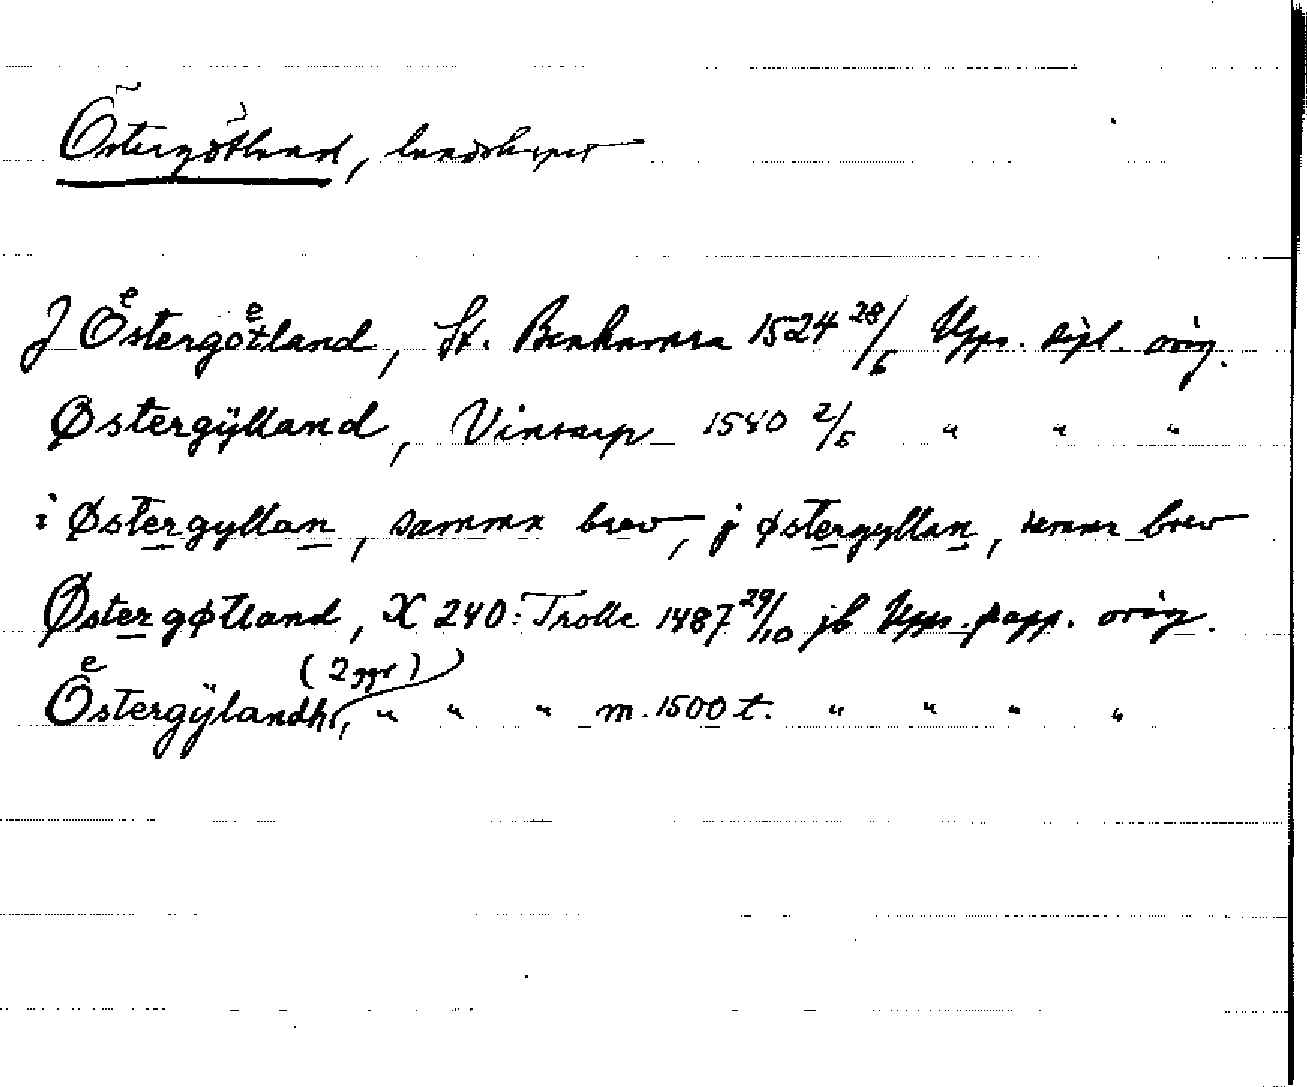 Östergötland, landskapet
J Oͤstergoͤtland, St. 1524 28/6 Upps. dipl. orig.
Østergÿlland, Vinstorp 1540 2/5 " " "
i Østergyllan, samma brev, j østergyllan, samma brev
Østergøtland, X 240: Trolle 1487 29/10 jb Upps. papp. orig.
Oͤstergÿlandh (2 ggr), " " " m. 1500 t. " " " "